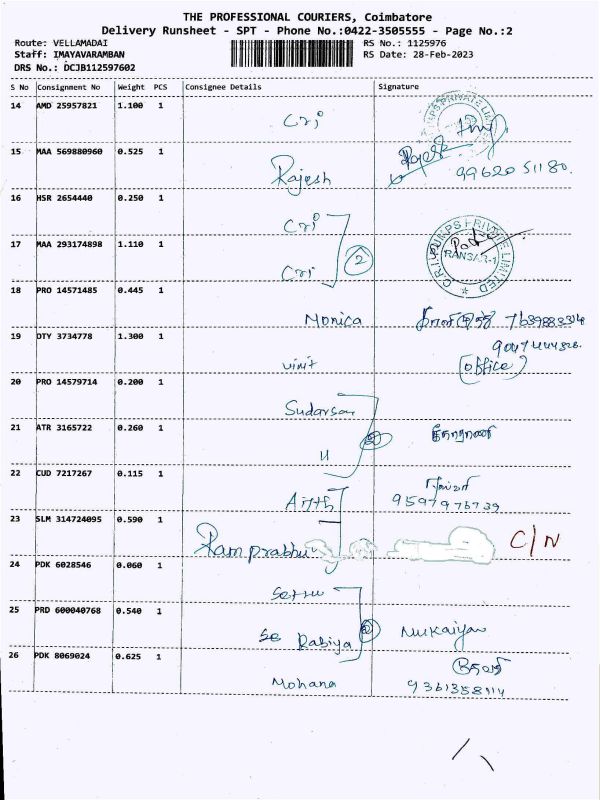 THE PROFESSIONAL COURIERS, Coimbatore
Delivery Runsheet - SPT - Phone No.:0422-3505555 - Page No.:2
Route: VELLAMADAI RS No.: 1125976
Staff: IMAYAVARAMBAN RS Date: 28-Feb-2023
DRS No.: DCJB112597602
S No Consignment No Weight PCS Consignee Details Signature
14 AMD 25957821 1.100 1
Cri
15 MAA 569880960 0.525 1 Rajesh
Rajesh 99620 51180.
16 HSR 2654440 0.250 1
Cri
17 MAA 293174898 1.110 1 2
Cri
C.R.I. PUMPS PRIVATE LIMITED
18 PRO 14571485 0.445 1
Monica
19 DTY 3734778 1.300 1
vinit (office)
20 PRO 14579714 0.200 1
Sudarsan
21 ATR 3165722 0.260 1
11
22 CUD 7217267 0.115 1
9597976739
23 SLM 314724095 0.590 1
Ramprabhu C/N
24 PDK 6028546 0.060 1
25 PRD 600040768 0.540 1
Se Rabiya Nukaiyan
26 PDK 8069024 0.625 1
Mohana 9361358114